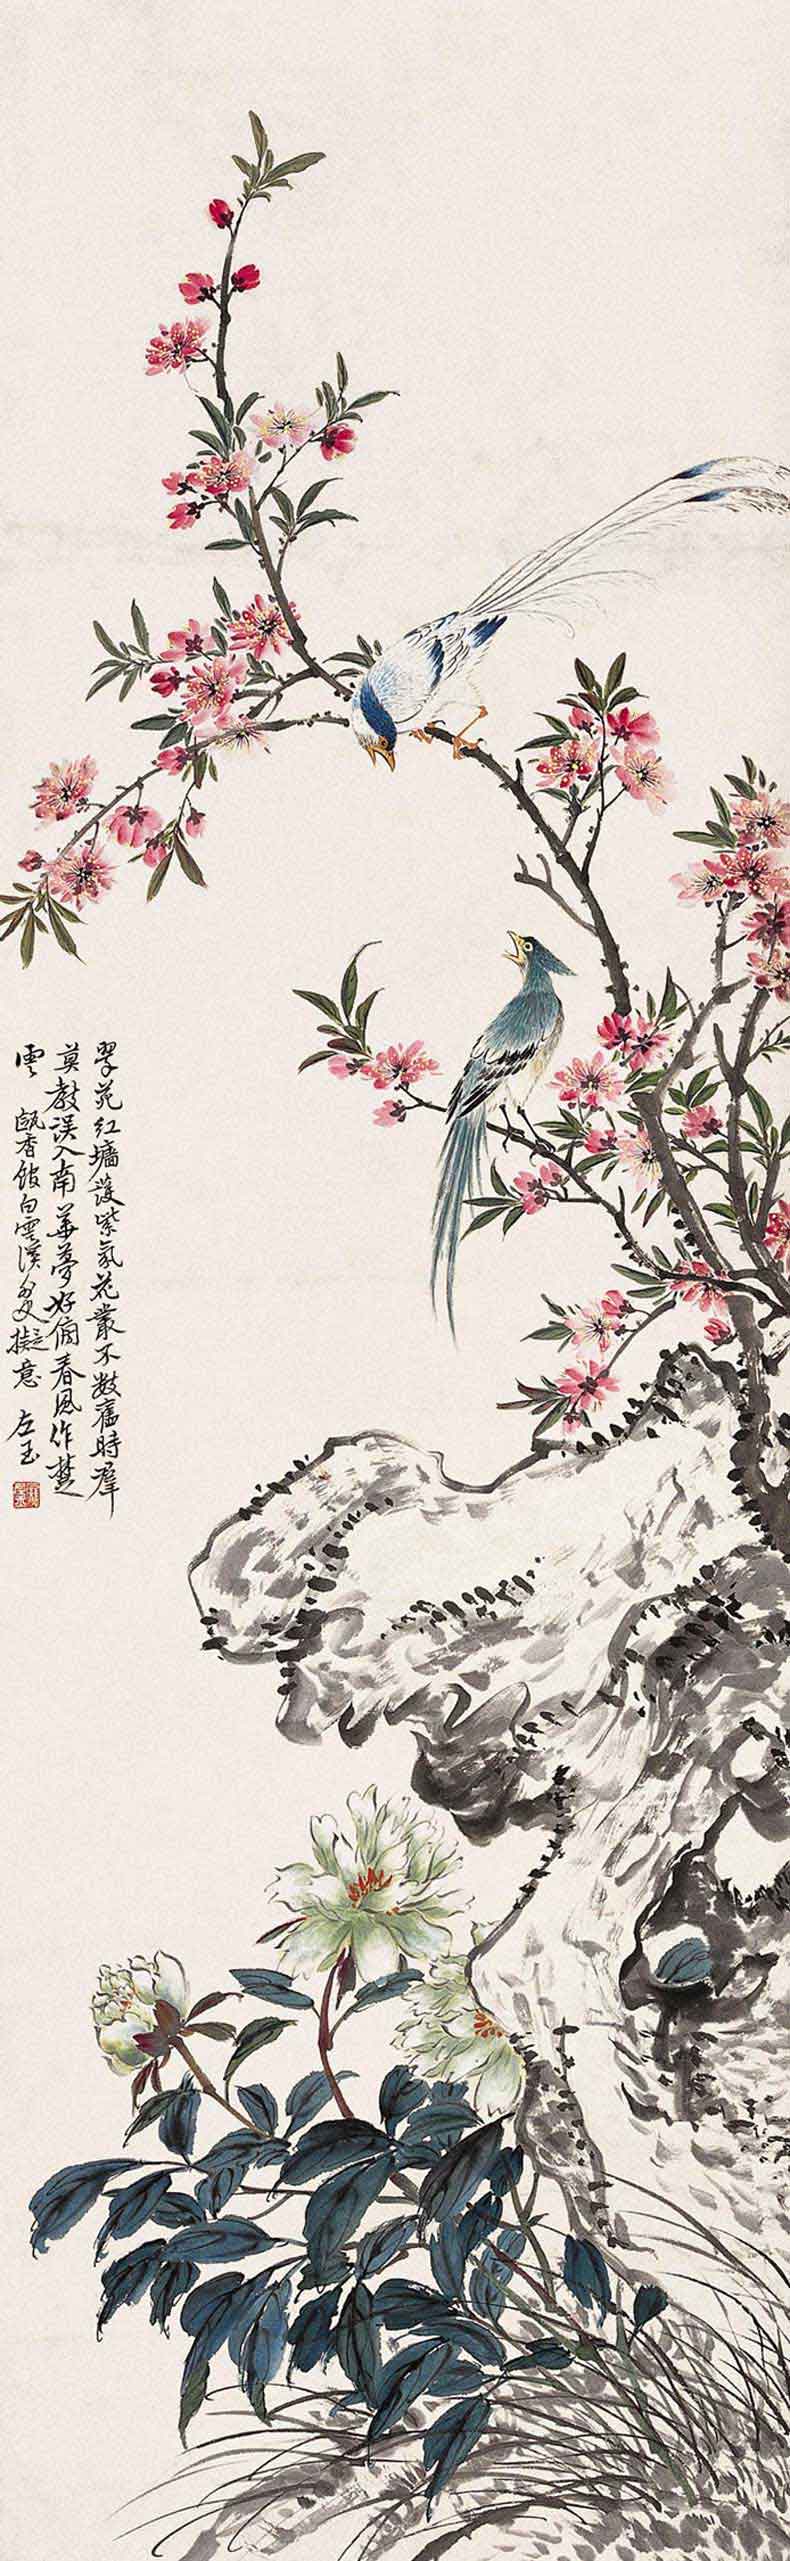 翠苑红墙護紫氛花叢不数舊時羣
莫教误入南華夢好倚春風作楚
雲 甌香馆白雲溪叟擬意 左玉